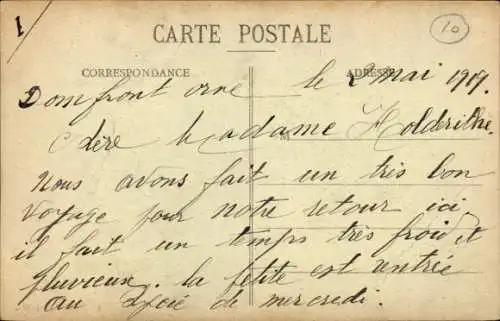 1
10
CARTE POSTALE
CORRESPONDANCE
ADRESSE
Domfront orne le 2 mai 1919.
Chère Madame Holderithe
Nous avons fait un très bon
voyage pour notre retour ici
il fait un temps très froid et
pluvieux. la petite est rentrée
au de mercredi.